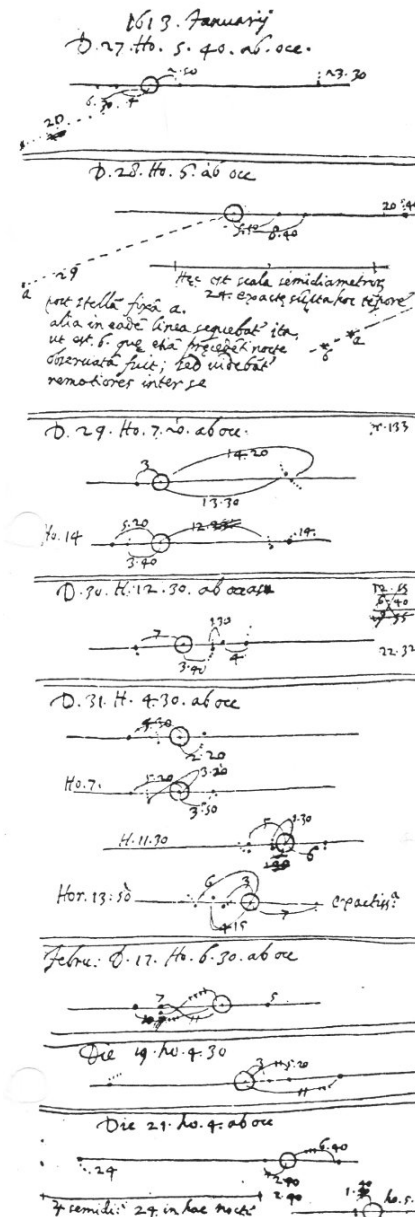 1613. Januarij
D. 27. Ho. 5. 40. ab. occ.
2.50
23.30
6.
4
20
D. 28. Ho. 5. ab occ
20
5.10
6.40
29
a
Hec est scala semidiametrorum
24. exacte
post stellā fixā a.
alia in eadē linea sequebat' ita,
ut est. b. que etiā precedēti nocte
observata fuit; sed videbāt'
remotiores inter se
a
b
D. 29. Ho. 7. ab occ.
r. 133
3
14.20
13.30
Ho. 14
5.20
12.
14.
3.40
D. 30. H. 12. 30. ab occasu
7
1.30
3.40
4.
22.32
D. 31. H. 4. 30. ab occ
4.30
2.20
Ho. 7.
5.20
3.20
3.50
H. 11. 30
5
1.30
6
Hor. 13:50
6
3
4.15
7
Febru: D. 17. Ho. 6. 30. ab occ
7
5
11
Die 19. ho. 4. 30
3
5.20
11
Die 21. ho. 4. ab occ
24
6.40
2.40
2.40
semidi: 24 in hac nocte
1.40
ho. 5.